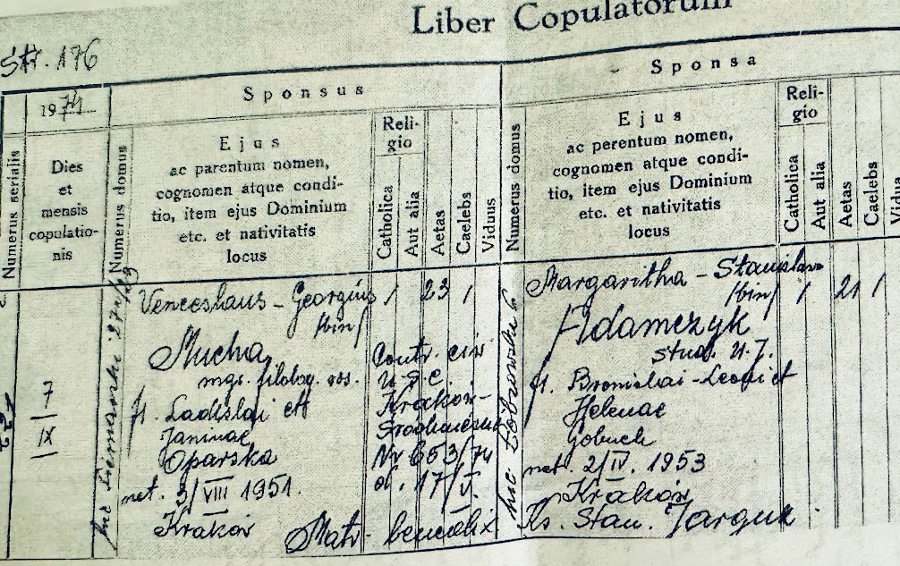 Liber Copulatorum
Str. 176
1974
Sponsus
Sponsa
Numerus serialis
Dies
et
mensis
copulatio-
nis
Numerus domus
Ejus
ac parentum nomen,
cognomen atque condi-
tio, item ejus Dominium
etc. et nativitatis
locus
Reli-
gio
Catholica
Aut alia
Aetas
Caelebs
Viduus
Numerus domus
Ejus
ac perentum nomen,
cognomen atque condi-
tio, item ejus Dominium
etc. et nativitatis
locus
Reli-
gio
Catholica
Aut alia
Aetas
Caelebs
7
IX
Venceslaus - Georgius / 23 /
/bin/
Mucha
mgr. filolog. ros.
fl. Ladislai et
Janinae
Oparska
nat. 3/VIII 1951.
Kraków
Contr. civ.
U.S.C.
Kraków-
Śródmieście
Nr 653/74
d. 17/V.
Matr. bened.
Margaritha - Stanislava
/bin/ / 21 /
Adamczyk
stud. U.J.
fl. Bronislai - Leoni et
Helenae
nat. 2/IV. 1953
Kraków
Ks. Stan.